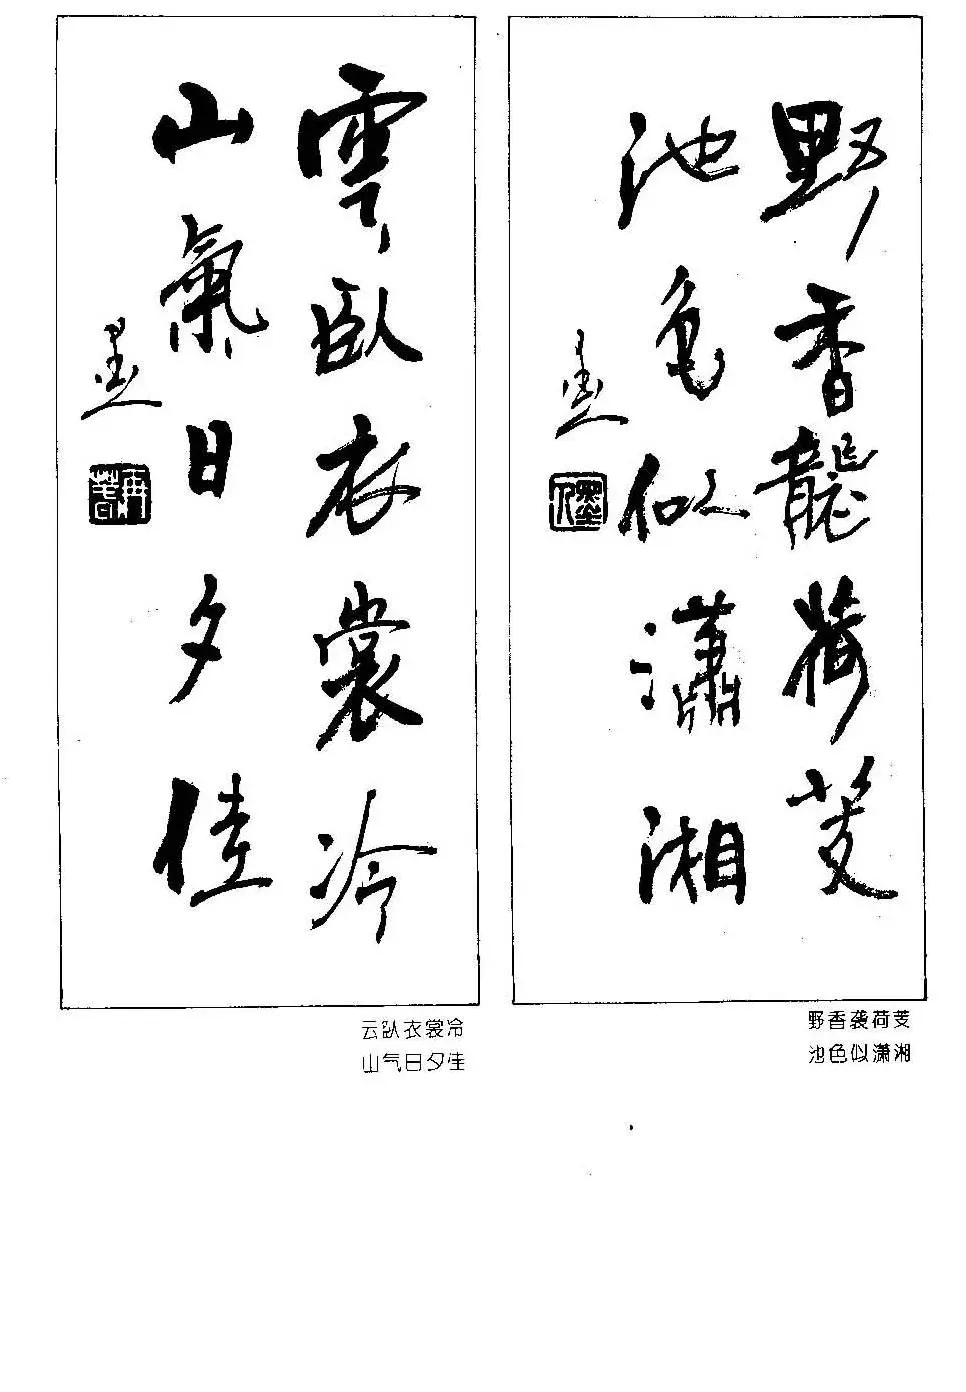 野香龍荷芰
池色似瀟湘
墨
墨人
野香袭荷芰
池色似潇湘
雲臥衣裳冷
山氣日夕佳
墨
云卧衣裳冷
山气日夕佳